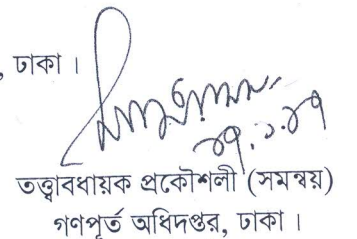 , ঢাকা ।
তত্ত্বাবধায়ক প্রকৌশলী (সমন্বয়)
গণপূর্ত অধিদপ্তর, ঢাকা ।